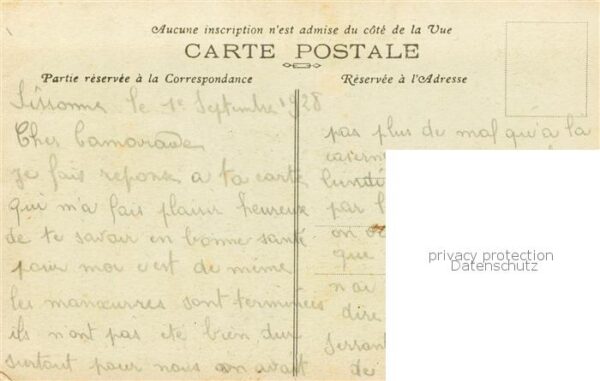 Aucune inscription n'est admise du côté de la Vue
CARTE POSTALE
Partie réservée à la Correspondance
Réservée à l'Adresse
Sissonne le 1e Septembre 1928
Cher Camarade
je fais reponse a ta carte
qui m'a fais plaisir heureux
de te savoir en bonne santé
pour moi c'est de même
les manœuvres sont terminées
ils n'ont pas ete bien dur
surtout pour nous on avait
pas plus de mal qu'a la
lundi
par
on
que
n'ai
dire
de
privacy protection
Datenschutz